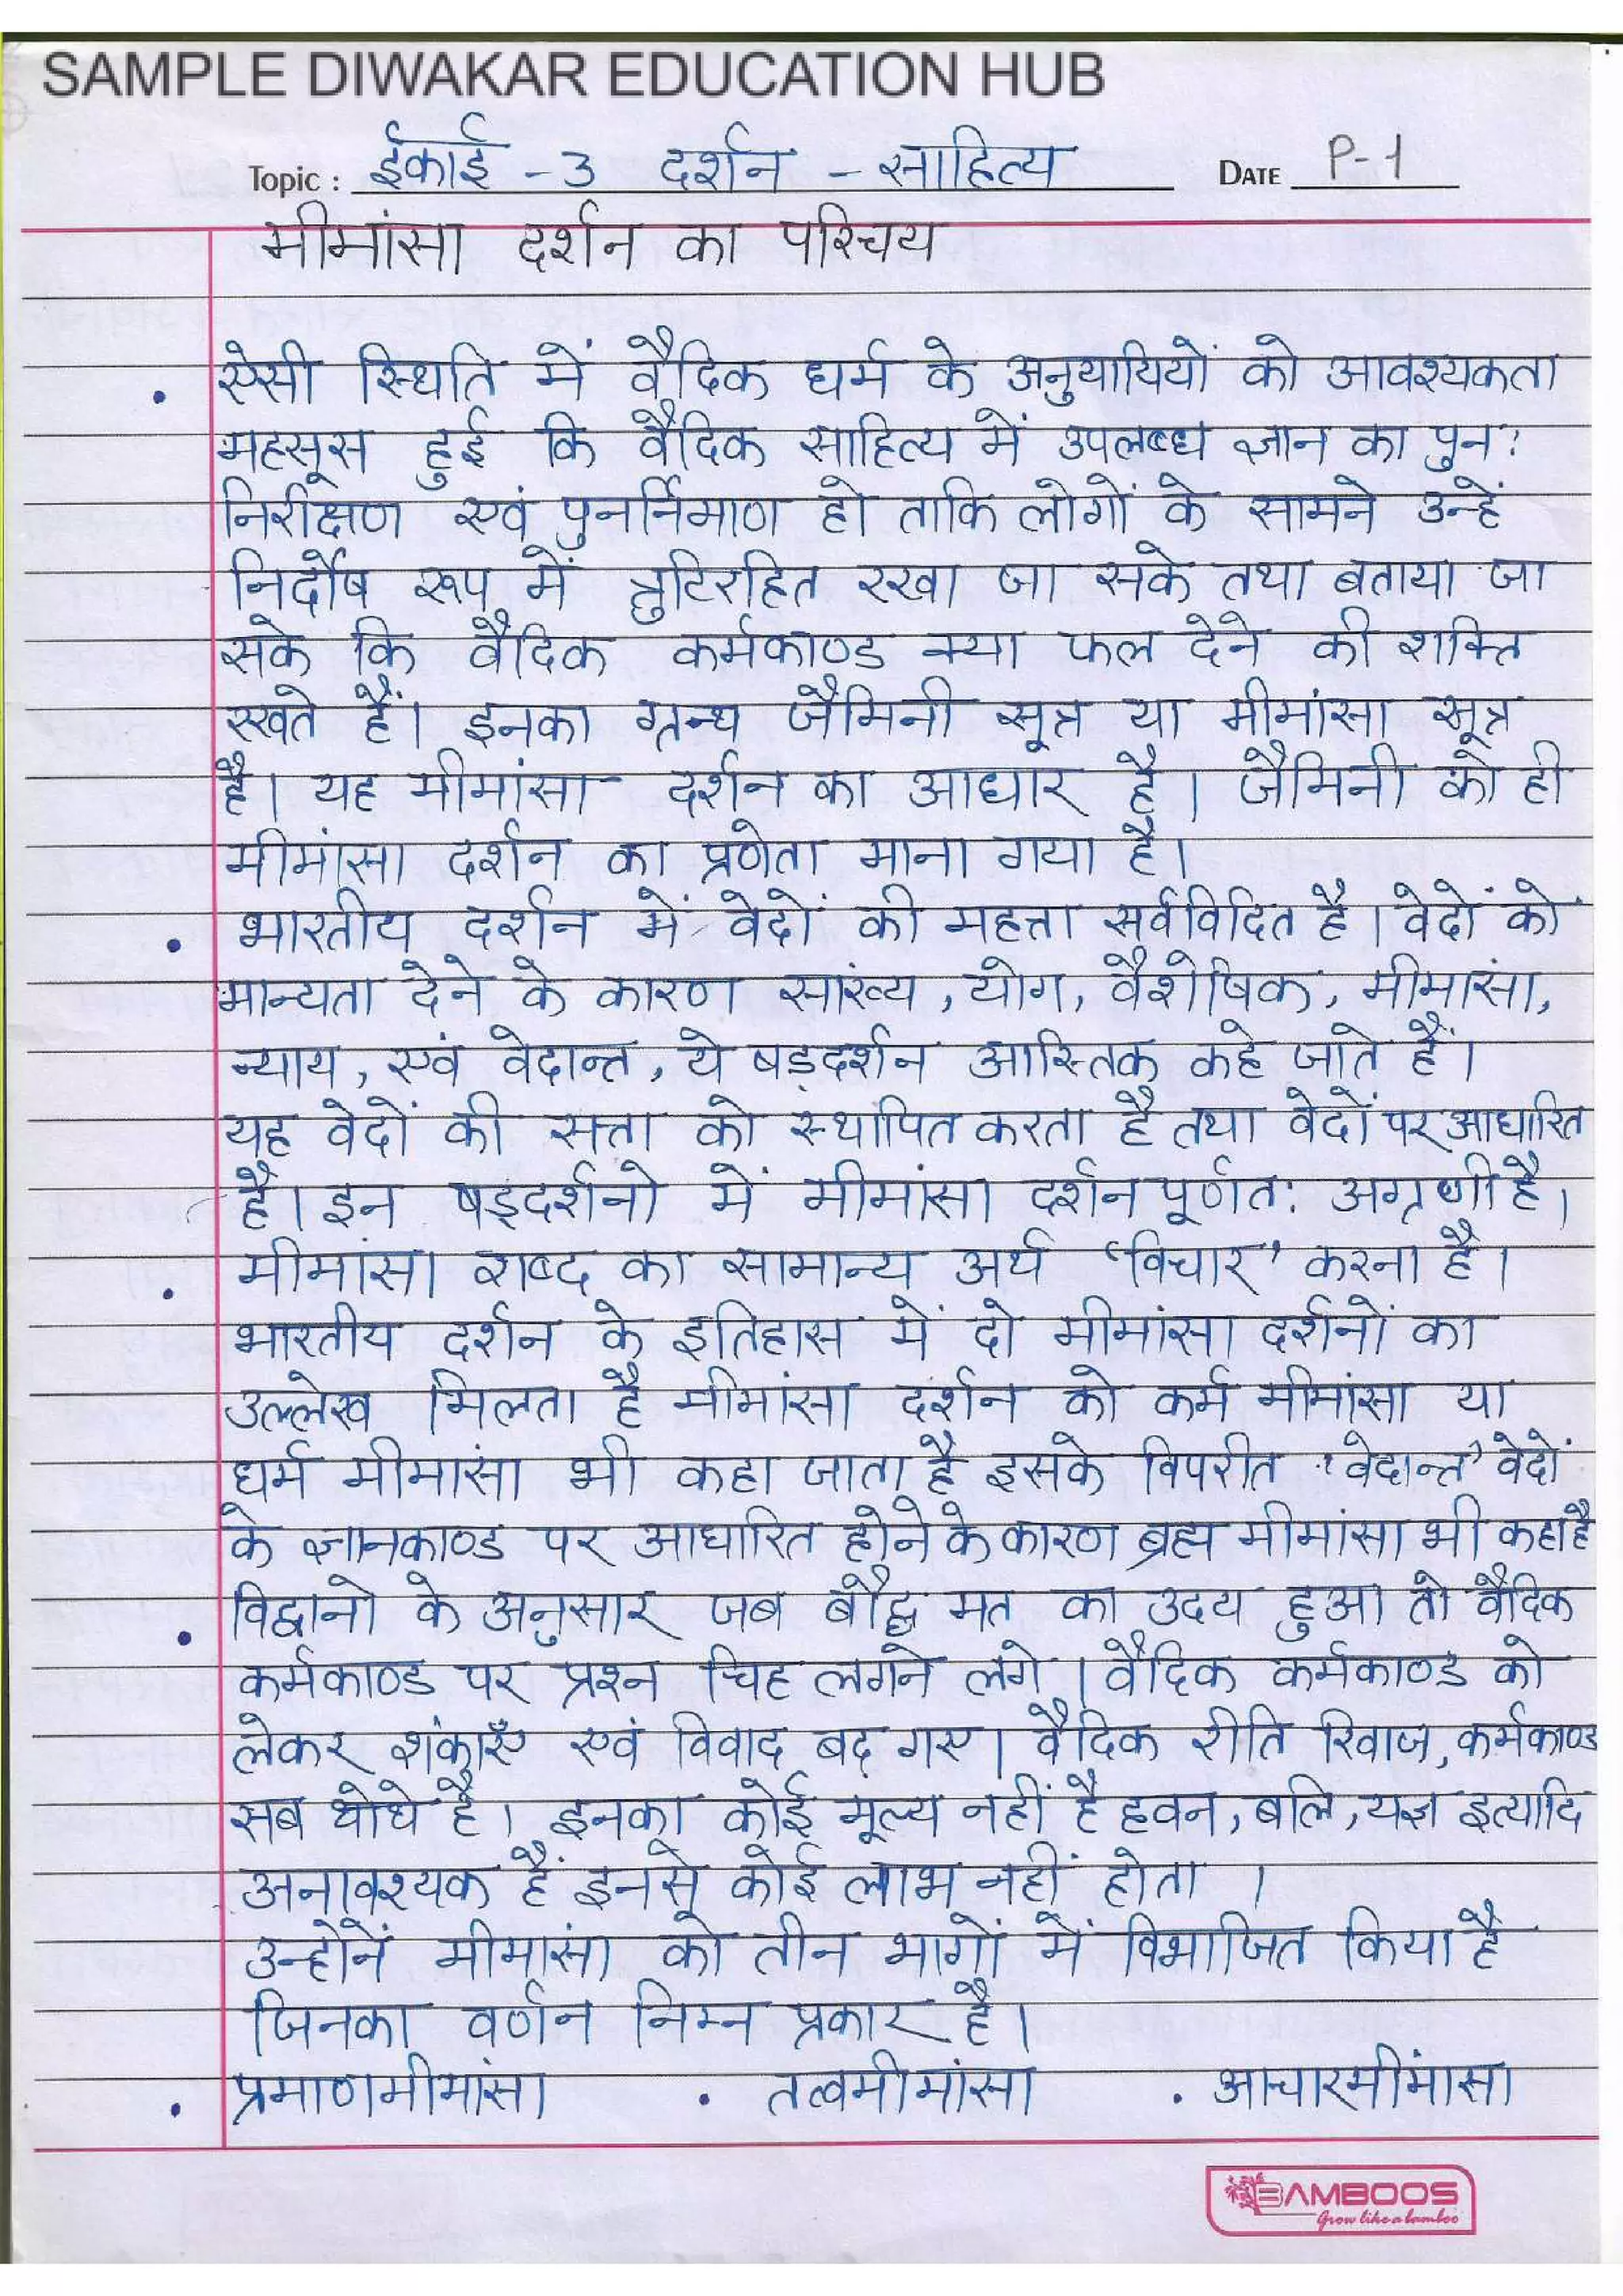 SAMPLE DIWAKAR EDUCATION HUB
Topic : ईकाई - 3 दर्शन - साहित्य DATE P-1
मीमांसा दर्शन का परिचय
• ऐसी स्थिति में वैदिक धर्म के अनुयायियों को आवश्यकता
महसूस हुई कि वैदिक साहित्य में उपलब्ध ज्ञान का पुन:
निरीक्षण एवं पुनर्निमाण हो ताकि लोगों के सामने उन्हें
निर्दोष रूप में त्रुटिरहित रखा जा सके तथा बताया जा
सके कि वैदिक कर्मकाण्ड क्या फल देने की शक्ति
रखते हैं। इनका ग्रन्थ जैमिनी सूत्र या मीमांसा सूत्र
है। यह मीमांसा दर्शन का आधार है। जैमिनी को ही
मीमांसा दर्शन का प्रणेता माना गया है।
• भारतीय दर्शन में वेदों की महत्ता सर्वविदित है। वेदों को
मान्यता देने के कारण सांख्य, योग, वैशेषिक, मीमासां,
न्याय, एवं वेदान्त, ये षड्दर्शन आस्तिक कहे जाते हैं।
यह वेदों की सत्ता को स्थापित करता है तथा वेदों पर आधारित
है। इन षड्दर्शनो में मीमांसा दर्शन पूर्णत: अग्रणी है।
• मीमांसा शब्द का सामान्य अर्थ 'विचार' करना है।
भारतीय दर्शन के इतिहास में दो मीमांसा दर्शनों का
उल्लेख मिलता है मीमांसा दर्शन को कर्म मीमांसा या
धर्म मीमासां भी कहा जाता है इसके विपरीत 'वेदान्त' वेदों
के ज्ञानकाण्ड पर आधारित होने के कारण ब्रह्म मीमांसा भी कहा है
• विद्वानो के अनुसार जब बौद्ध मत का उदय हुआ तो वैदिक
कर्मकाण्ड पर प्रश्न चिह लगने लगे। वैदिक कर्मकाण्ड को
लेकर शंकाएँ एवं विवाद बढ़ गए। वैदिक रीति रिवाज, कर्मकाण्ड
सब थोथे है। इनका कोई मूल्य नहीं है हवन, बलि, यज्ञ इत्यादि
अनावश्यक हैं इनसे कोई लाभ नहीं होता ।
उन्होनें मीमासां को तीन भागों में विभाजित किया है
जिनका वर्णन निम्न प्रकार है।
• प्रमाणमीमांसा • तत्वमीमांसा • आचारमीमांसा
BAMBOOS
Grow like a bamboo